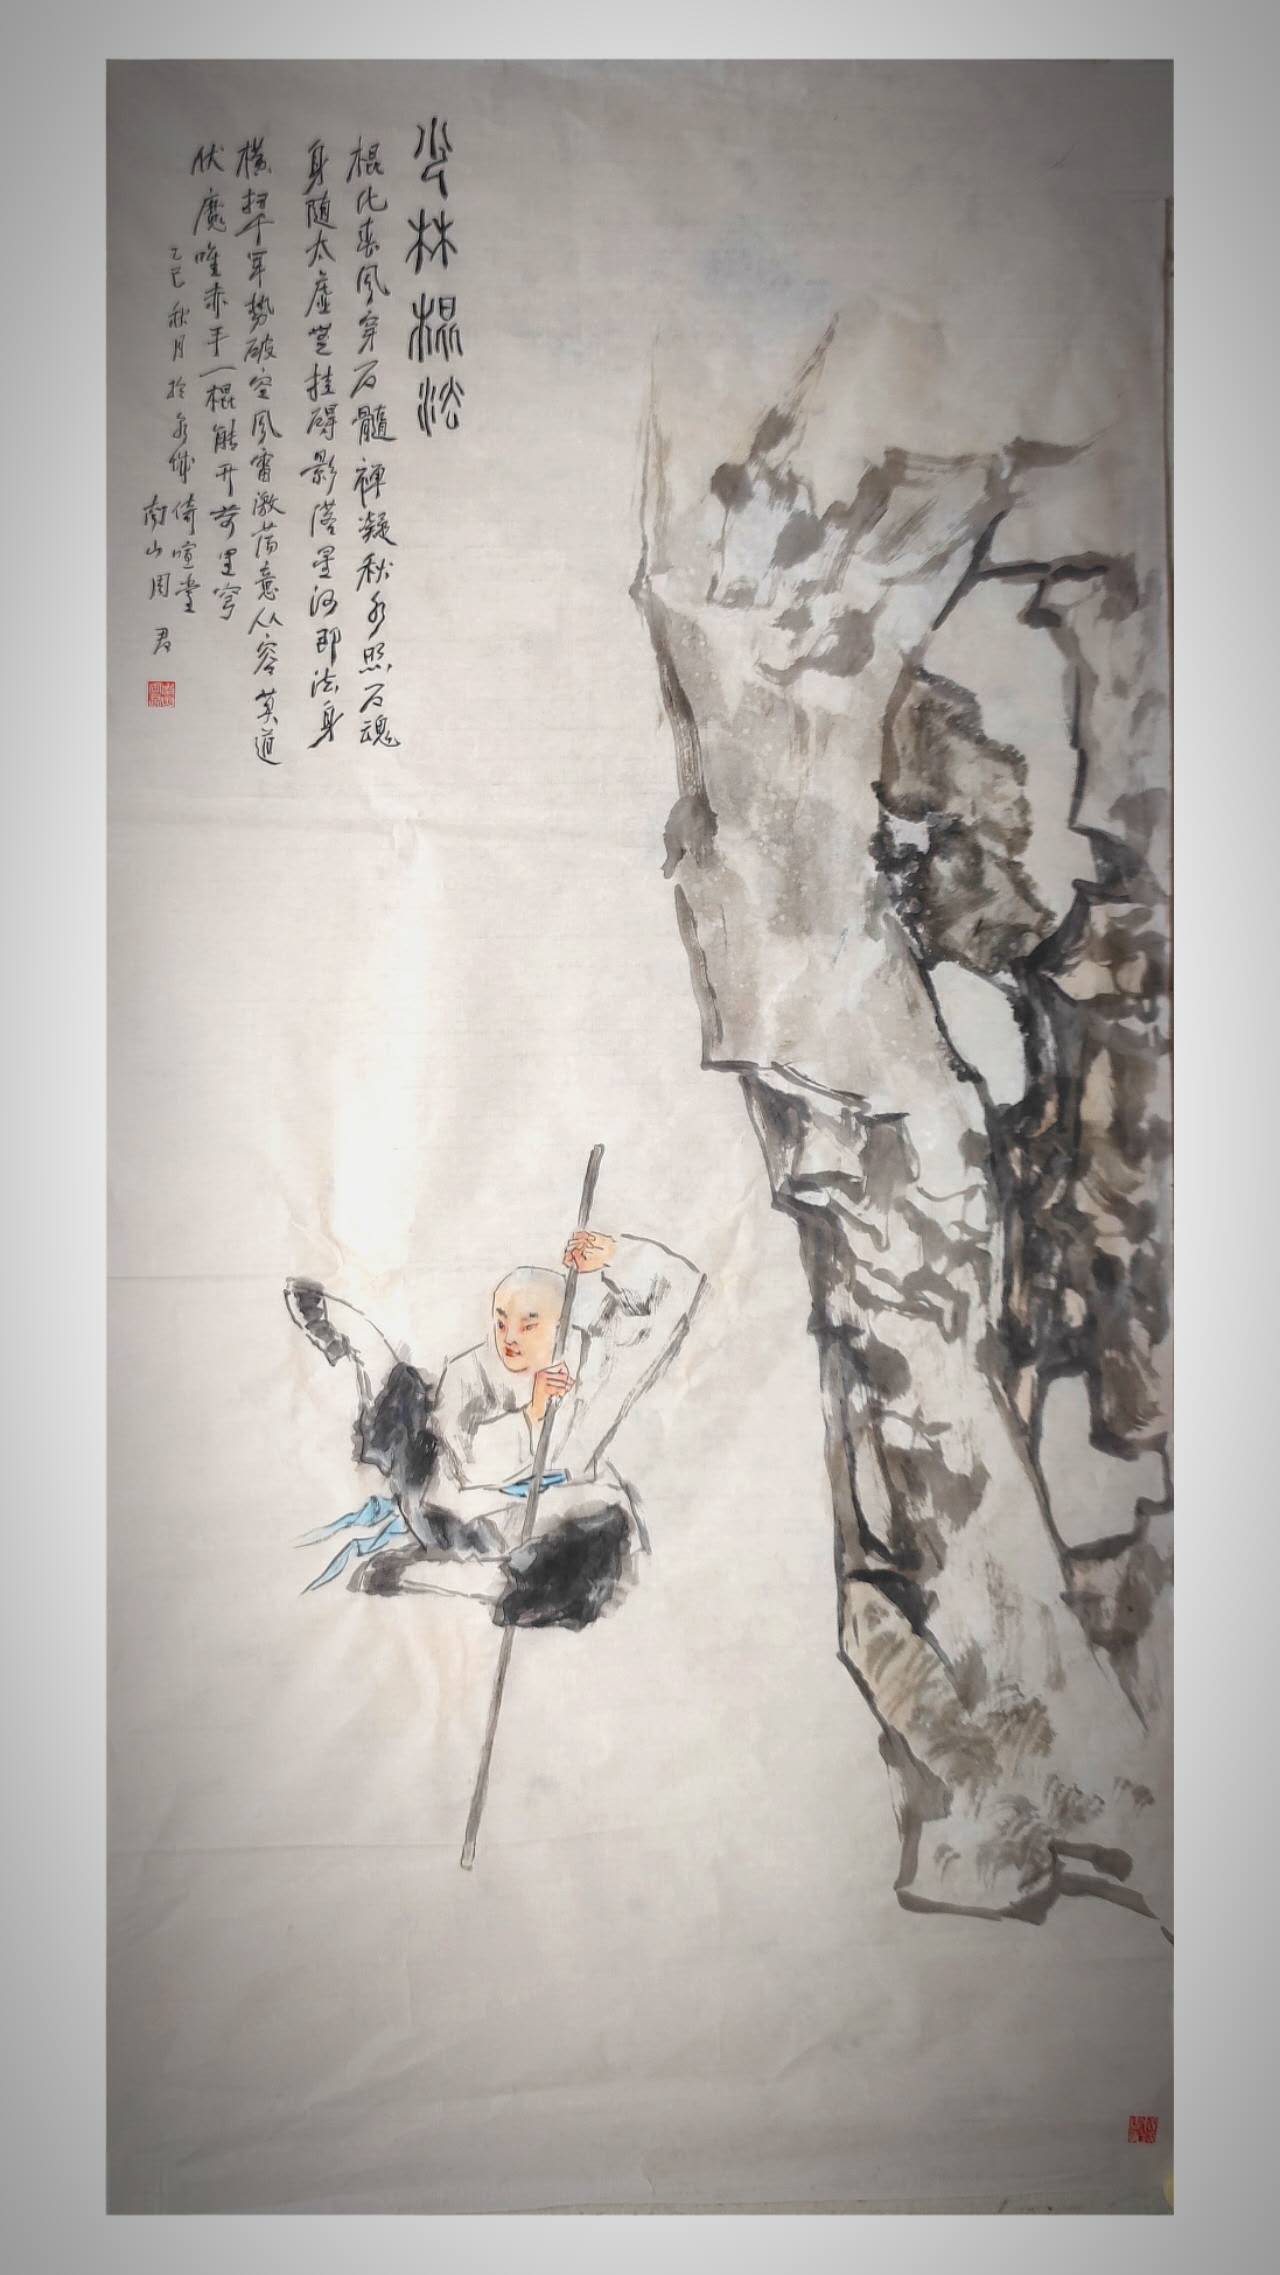 少林棍法
棍化春风穿石髓禅凝秋水照石魂
身随太虚芒挂碍影落星河即法身
横扫千军势破空风雷激荡意从容莫道
伏魔唯赤手一棍能开苍里穹
乙巳秋月於泉城倚喧堂
南山周君